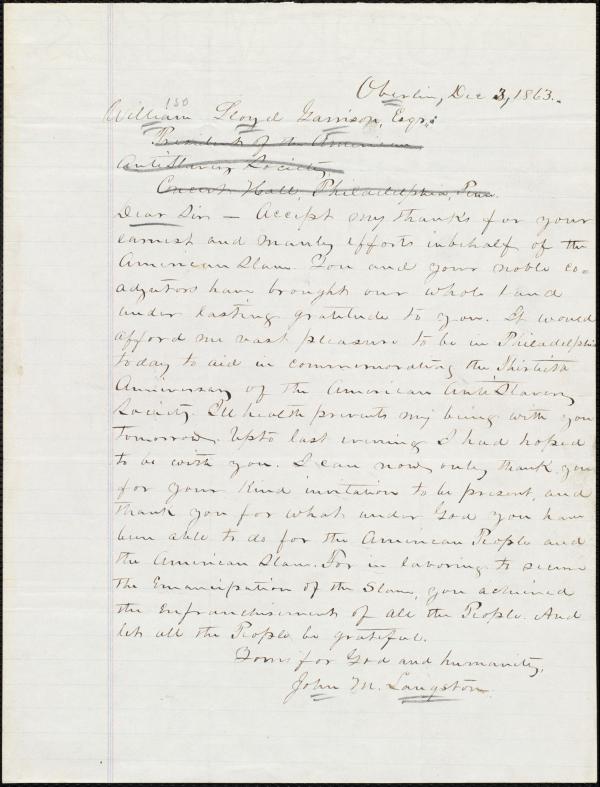 Oberlin, Dec 3, 1863.
150
William Lloyd Garrison, Esqr.:
President of the American
AntiSlavery Society,
Concert Hall, Philadelphia, Penn.
Dear Sir — Accept my thanks for your
earnest and manly efforts inbehalf of the
American Slave. You and your noble co-
adjutors have brought our whole land
under lasting gratitude to you. It would
afford me vast pleasure to be in Philadelphia
today to aid in commemorating the Thirtieth
Anniversary of the American AntiSlavery
Society. Ill health prevents my being with you
tomorrow. Upto last evening I had hoped
to be with you. I can now only thank you
for your kind invitation to be present, and
thank you for what under God you have
been able to do for the American People and
the American Slave. For in laboring to secure
the Emancipation of the Slave, you achieved
the Enfranchisement of all the People. And
let all the People be grateful.
Yours for God and humanity,
John M. Langston.